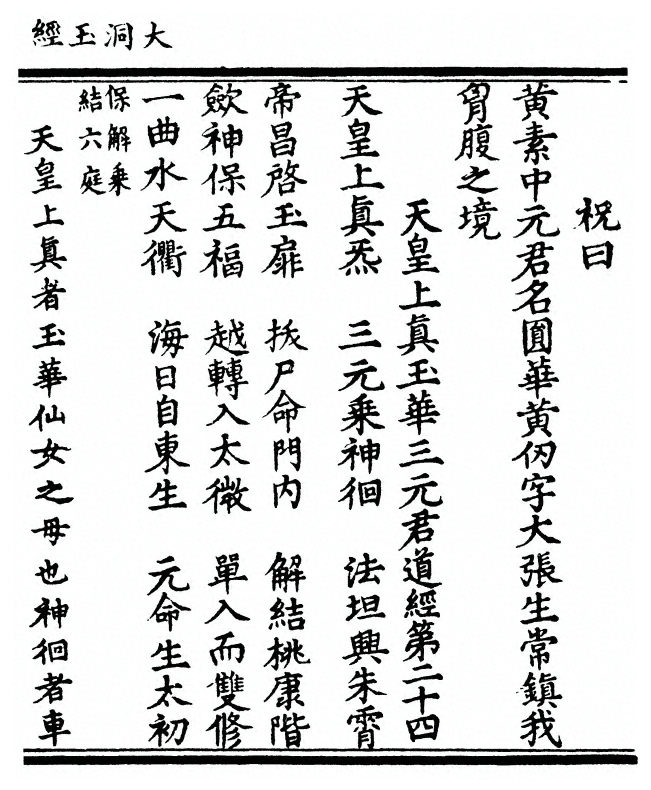 大洞玉經
祝曰
黃素中元君名圓華黃仭字大張生常鎮我
胷腹之境
天皇上眞玉華三元君道經第二十四
天皇上眞炁　三元乗神徊　法坦興朱霄
帝昌啓玉扉　扷尸命門内　解結桃康階
歛神保五福　越轉入太微　單入而雙修
一曲水天衢　海日自東生　元命生太初
保解乗
結六庭
天皇上眞者玉華仙女之母也神徊者車